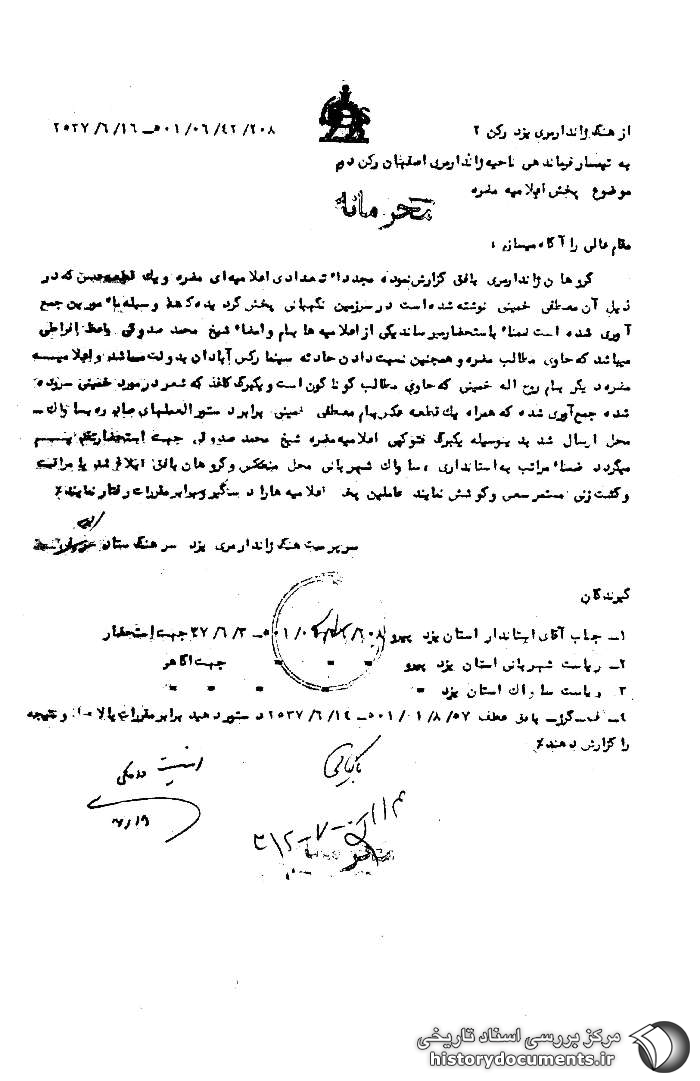 از هنگ ژاندارمری یزد رکن ۲
۵۰۱/۰۶/۴۲/۲۰۸ـ ۲۵۳۷/۶/۱۶
به تیمسار فرماندهی ناحیه ژاندارمری اصفهان رکن دوم
موضوع پخش اعلامیه مضره
محرمانه
مقام عالی را آگاه میسازد :
گروهان ژاندارمری بافق گزارش نموده مجدداً تعدادی اعلامیه‌ای مضره و یک قطعه عکس که در
ذیل آن مصطفی خمینی نوشته شده است در سرزمین نگهبانی پخش گردیده که وسیله مأمورین جمع
آوری شده است ضمناً باستحضار میرساند یکی از اعلامیه ها پیام و امضاء شیخ محمد صدوقی واعظ افراطی
میباشد که حاوی مطالب مضره و همچنین نسبت دادن حادثه سینما رکس آبادان بدولت میباشد و اعلامیه
مضره دیگر پیام روح اله خمینی که حاوی مطالب گوناگون است و یکبرگ کاغذ که شعر در مورد خمینی سروده
شده جمع آوری شده که همراه یک قطعه عکس پیام مصطفی خمینی برابر دستورالعملهای صادره بساواک
محل ارسال شد بدینوسیله یکبرگ فتوکپی اعلامیه مضره شیخ محمد صدوقی جهت استحضار تقدیم
میگردد ضمناً مراتب به استانداری ، ساواک شهربانی محل منعکس و گروهان بافق ابلاغ شد با مراقبت
و گشت زنی مستمر سعی و کوشش نمایند عاملین پخش اعلامیه ها را دستگیر و برابر مقررات رفتار نمایند٪
سرپرست هنگ ژاندارمری یزد سرهنگ ستاد
گیرندگان
۱ـ جناب آقای استاندار استان یزد پیرو ۲۰۸/ ۵۰۱/۰ـ ۳۷/۶/۳ جهت استحضار
۲ـ ریاست شهربانی استان یزد پیرو " " " جهت آگاهی
۳ـ ریاست ساواک استان یزد " " " "
۴ـ ف گر بافق عطف ۵۰۱/۰۱/۸/۵۷ـ ۲۵۳۷/۶/۱۴ دستور دهید برابر مقررات بالا و نتیجه
را گزارش دهند٪
بایگانی
۷/۱۹
مرکز بررسی اسناد تاریخی
historydocuments.ir